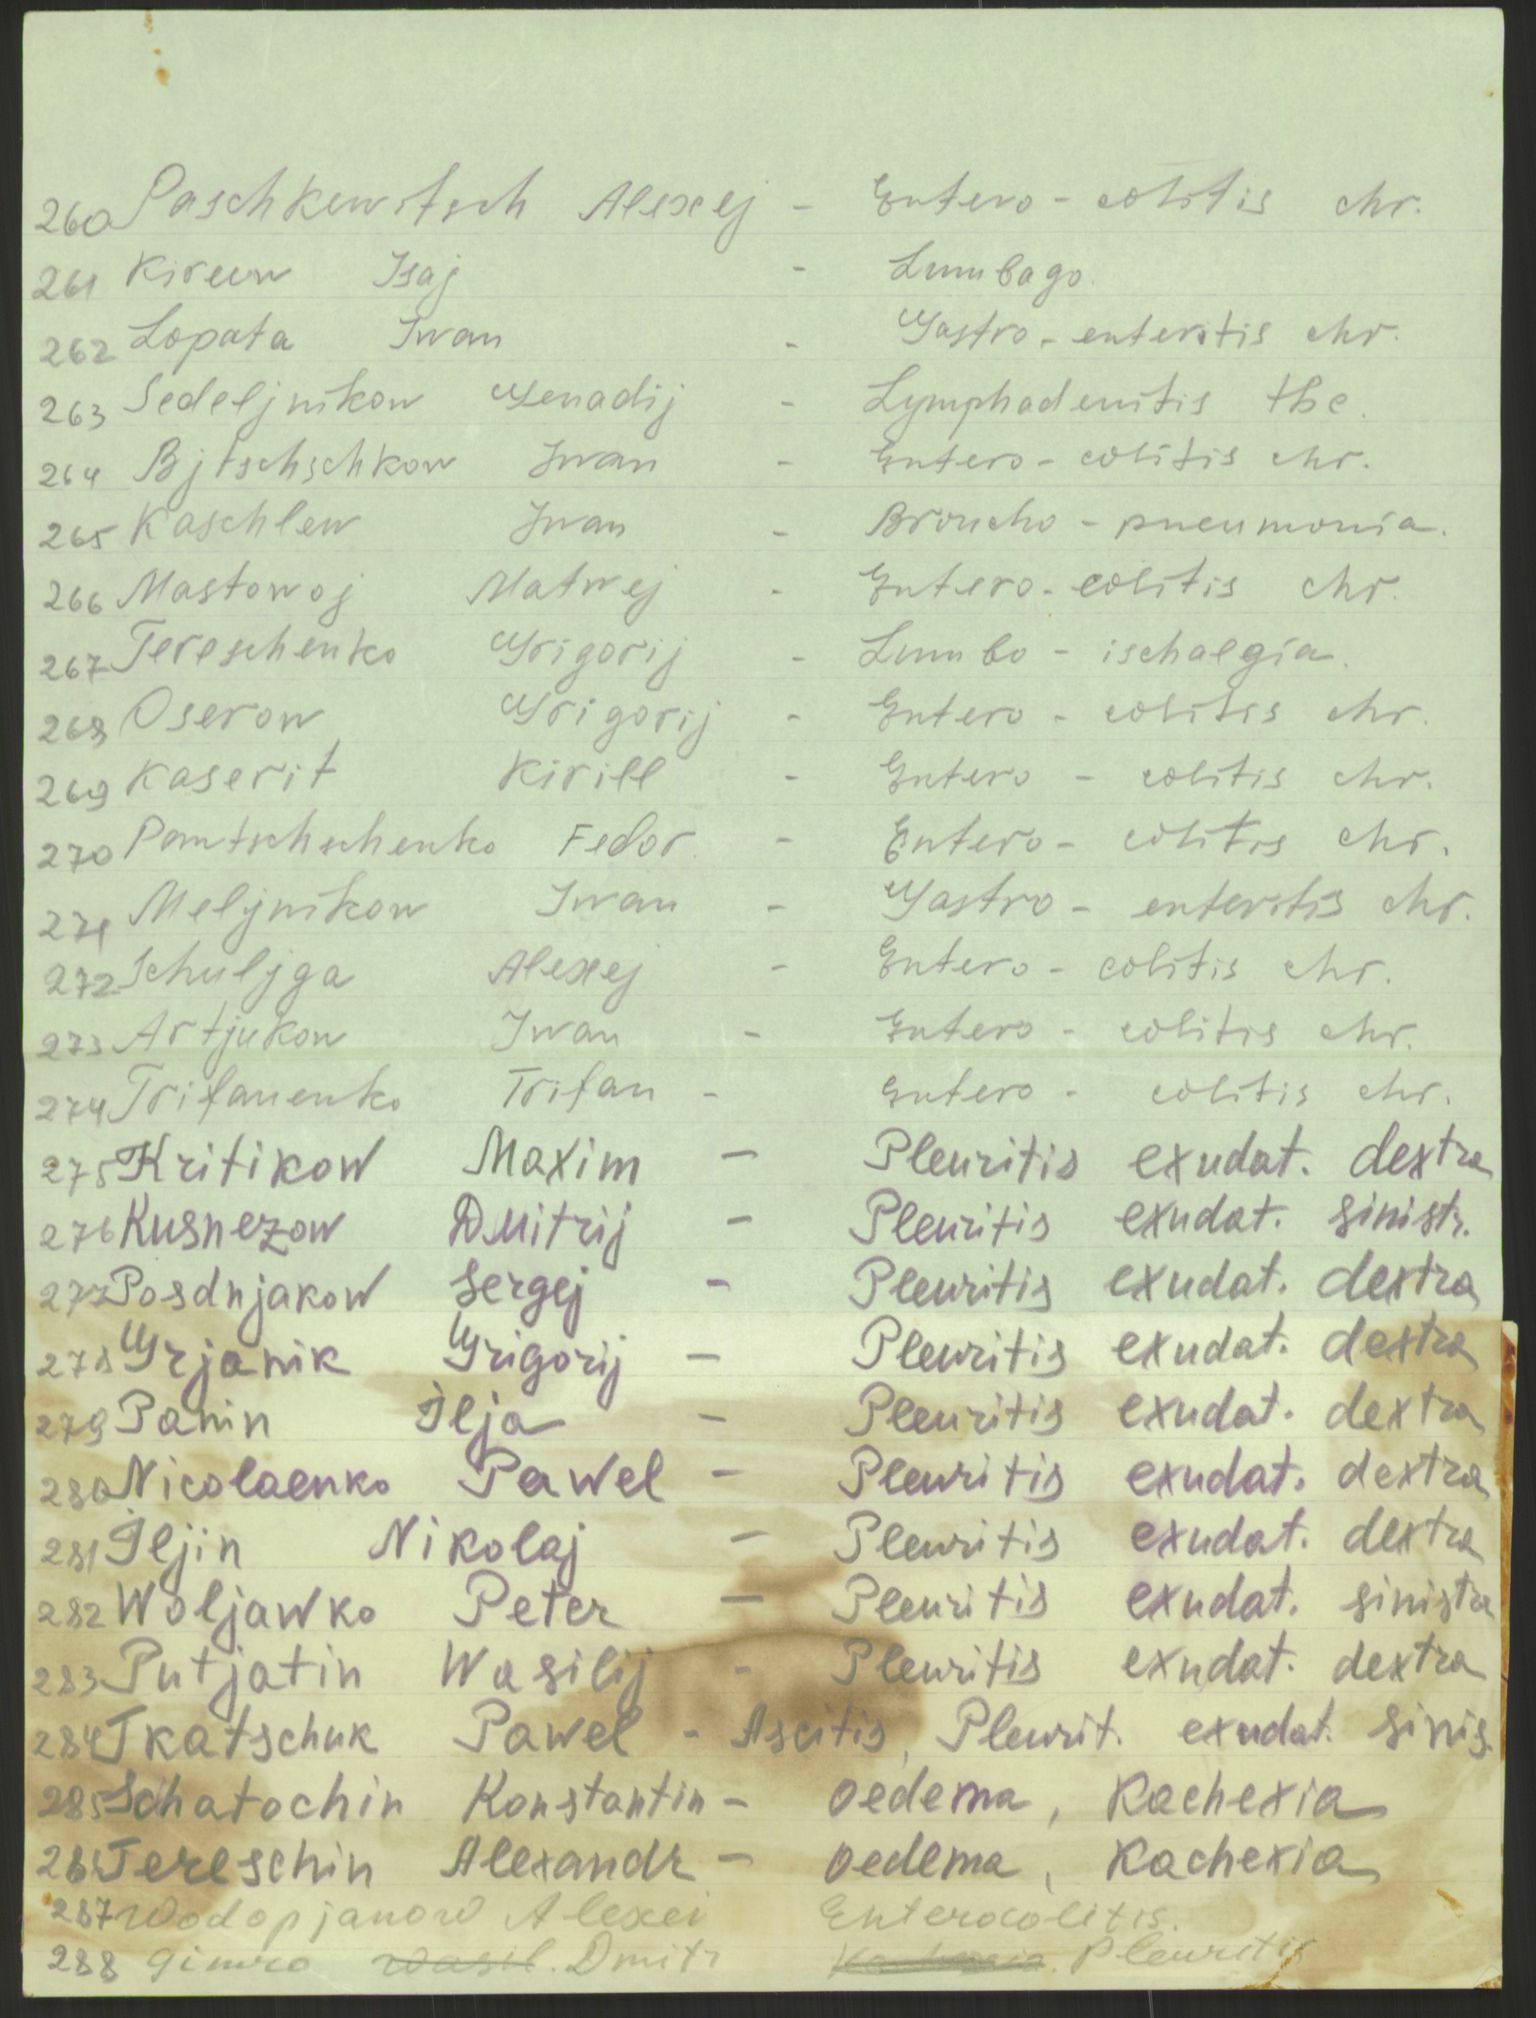 260 Paschkewitsch Alexej - Entero-colitis chr.
261 Kireew Isaj - Lumbago.
262 Lopata Iwan - Gastro-enteritis chr.
263 Sedeljnikow Genadij - Lymphadenitis tbc.
264 Bjtschschkow Iwan - Entero-colitis chr.
265 Kaschlew Iwan - Broncho-pneumonia.
266 Mastowoj Matwej - Entero-colitis chr.
267 Tereschenko Grigorij - Lumbo-ischalgia.
268 Oserow Grigorij - Entero-colitis chr.
269 Kaserit Kirill - Entero-colitis chr.
270 Pantschschenko Fedor - Entero-colitis chr.
271 Meljnikow Iwan - Gastro-enteritis chr.
272 Schuljga Alexej - Entero-colitis chr.
273 Artjukow Iwan - Entero-colitis chr.
274 Trifanenko Trifan - Entero-colitis chr.
275 Kritikow Maxim - Pleuritis exudat. dextra
276 Kusnezow Dmitrij - Pleuritis exudat. sinistr.
277 Posdnjakow Sergej - Pleuritis exudat. dextra
278 Grjanik Grigorij - Pleuritis exudat. dextra
279 Panin Ilja - Pleuritis exudat. dextra
280 Nicolaenko Pawel - Pleuritis exudat. dextra
281 Iljin Nikolaj - Pleuritis exudat. dextra
282 Woljawko Peter - Pleuritis exudat. sinistra
283 Putjatin Wasilij - Pleuritis exudat. dextra
284 Tkatschuk Pawel - Ascitis, Pleurit. exudat. sinis.
285 Schatochin Konstantin - oedema, Kachexia
286 Tereschin Alexandr - oedema, Kachexia
287 Wodopjanow Alexei Enterocolitis.
288 Wasil. Dmitr Pleuritis